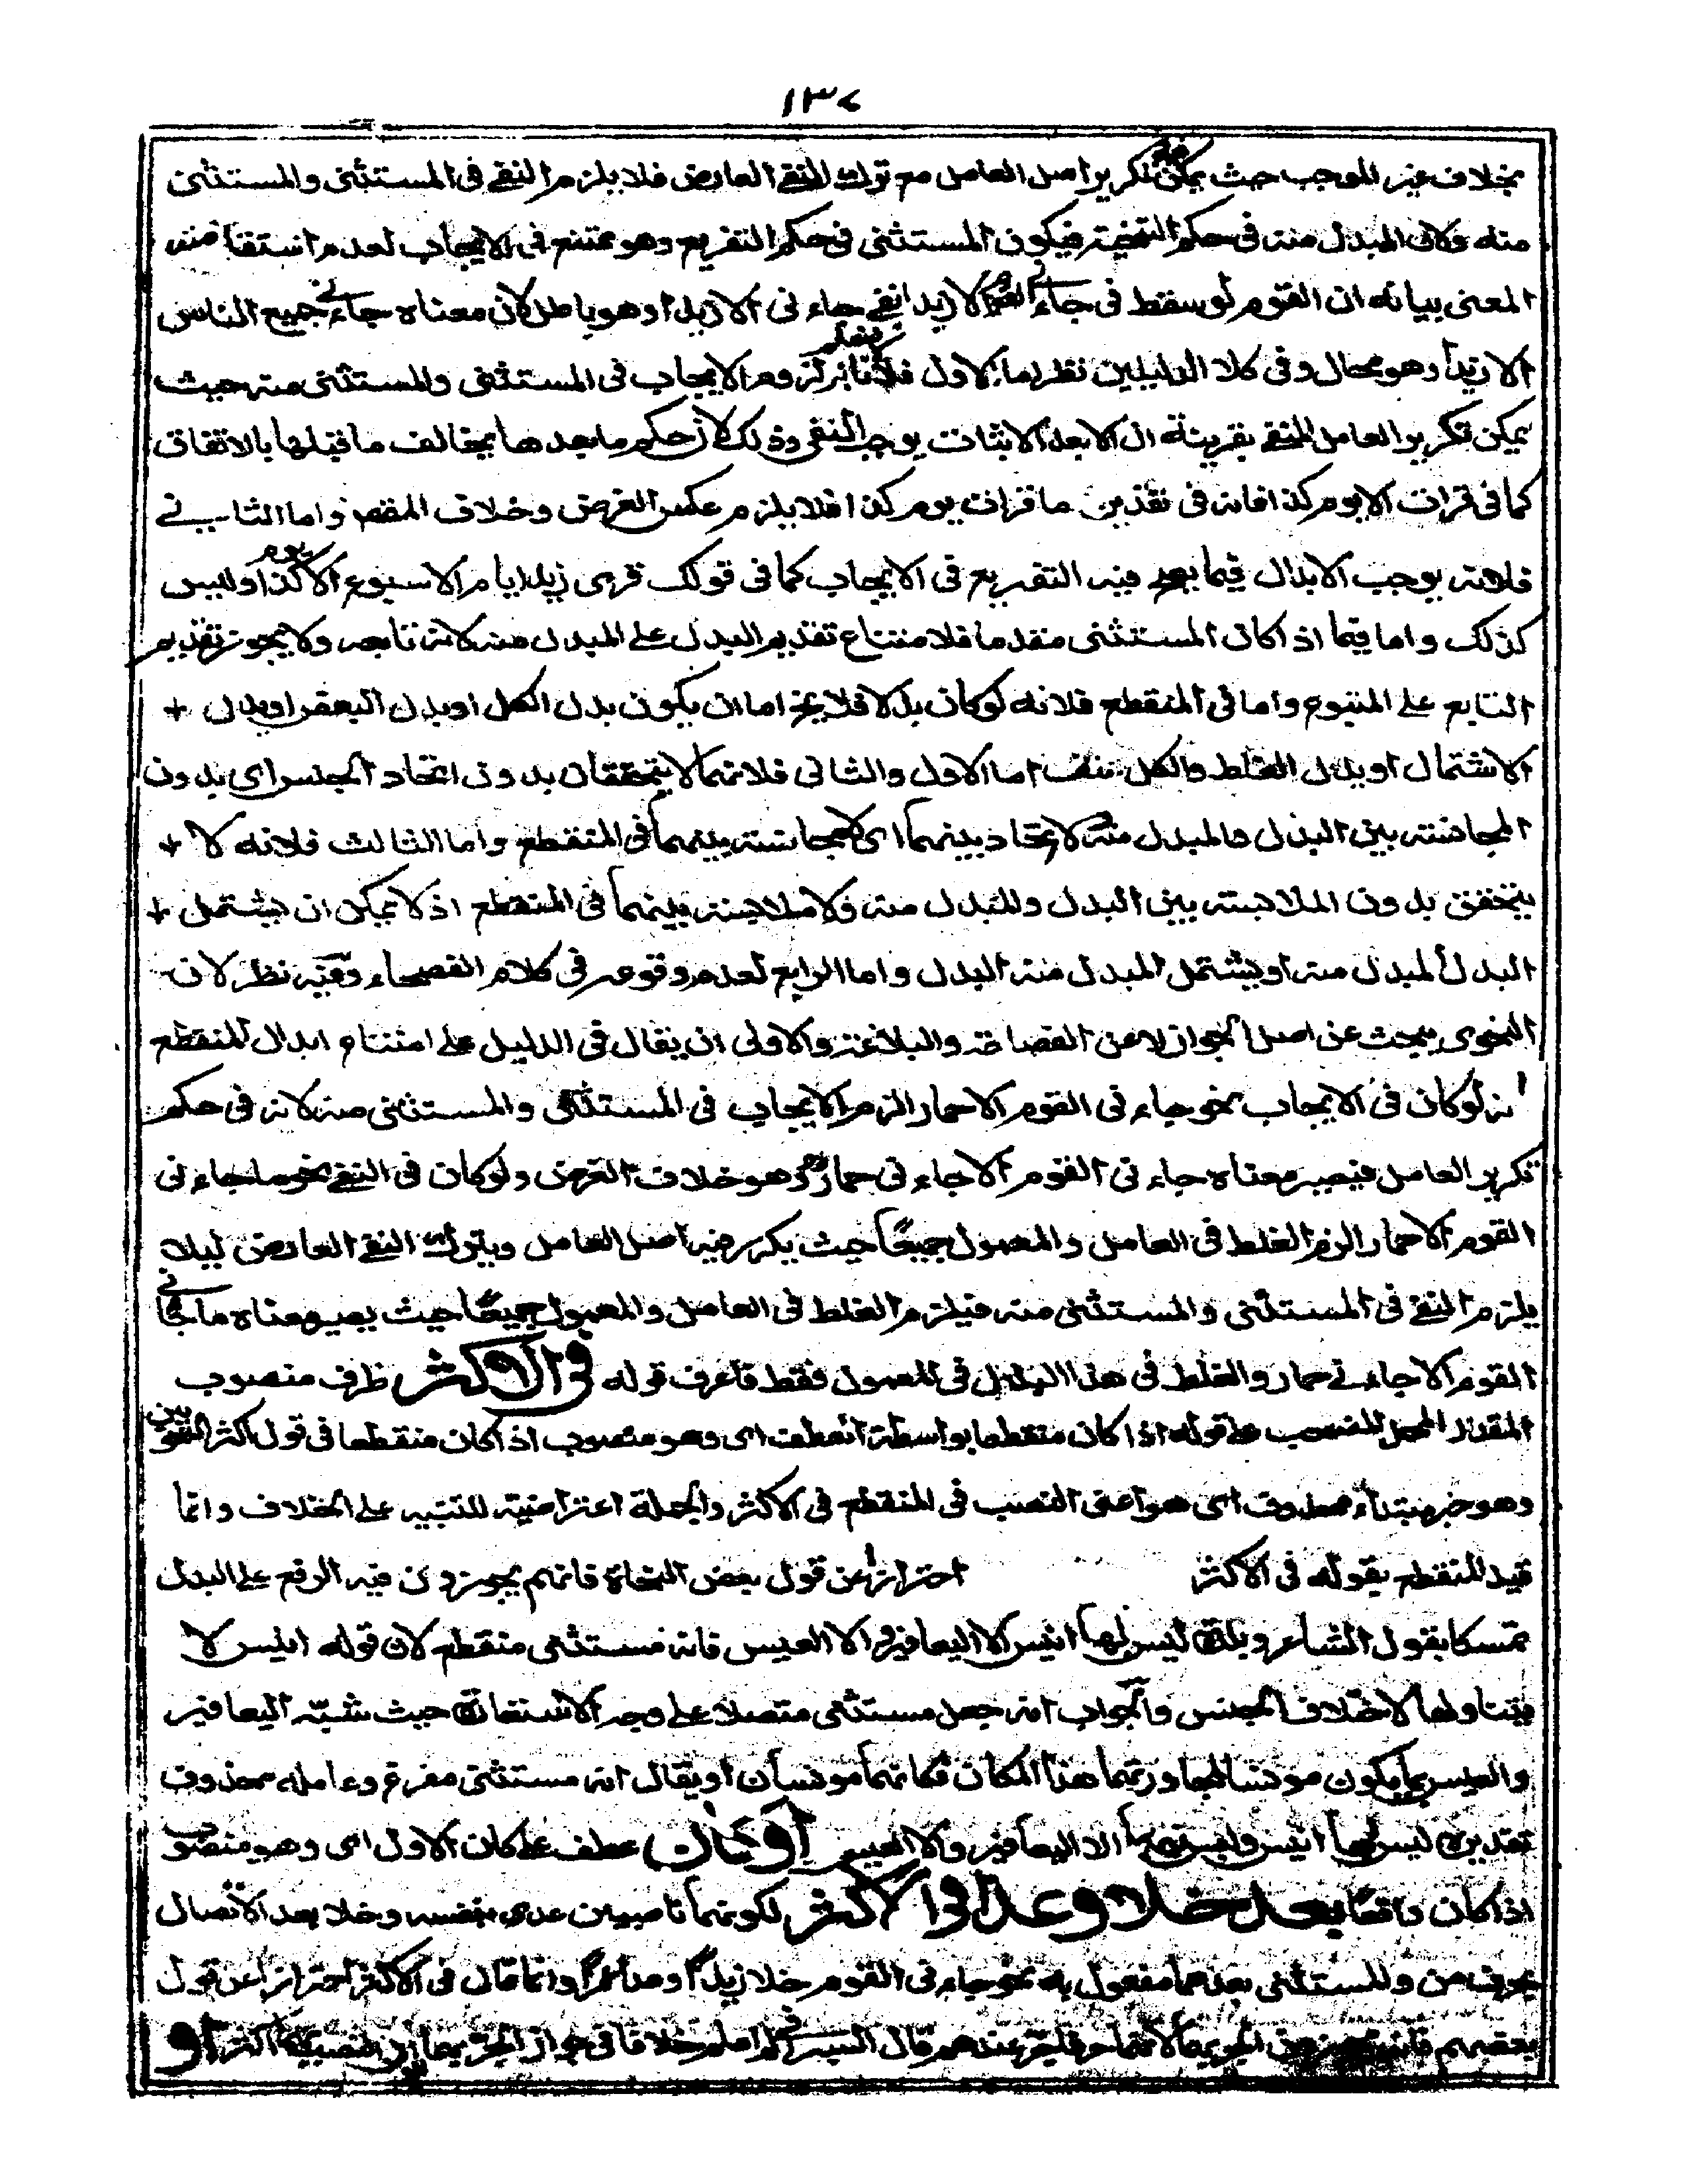 ١٣٧
بخلاف غير الموجب حيث يمكن تكرير اصل العامل مع ترك النفي العارض فلا يلزم النفي في المستثنى والمستثنى
منه ولان المبدل منه في حكم التنحية فيكون المستثنى في حكم التفريع وهو ممتنع في الايجاب لعدم استقامة
المعنى بيانه ان القوم لو سقط في جاءني القوم الا زيد ابقي جاء نى الا زيد وهو باطل لان معناه جاءني جميع الناس
الا زيدا وهو محال وفى كلا الدليلين نظر اما الاول فلانا لزوم الايجاب فى المستثنى والمستثنى منه حيث
يمكن تكرير العامل المنفي بقرينة ان الا بعد الاثبات يوجب النفى وذلك لان حكم ما بعدها يخالف ما قبلها بالاتفاق
كما فى قرات الا يوم كذا فانه فى تقدير ما قرات يوم كذا فلا يلزم عكس الغرض وخلاف المقصود واما الثاني
فلانه يوجب الابدال فيما يصح فيه التفريع فى الايجاب كما فى قولك قرى زيد ايام الاسبوع الا يوم كذا وليس
كذلك واما فيما اذا كان المستثنى مقدما فلامتناع تقديم البدل على المبدل منه لانه تابعه ولا يجوز تقديم
التابع على المتبوع واما فى المنقطع فلانه لو كان بدلا فلا يخ اما ان يكون بدل الكل او بدل البعض او بدل +
الاشتمال او بدل الغلط والكل منتف اما الاول والثانى فلانهما لا يتحققان بدون اتحاد الجنس اى بدون
المجانسة بين البدل والمبدل منه ولا اتحاد بينهما اى لا مجانسة بينهما فى المنقطع واما الثالث فلانه لا +
يتحقق بدون الملابسة بين البدل والمبدل منه ولا ملابسة بينهما فى المنقطع اذ لا يمكن ان يشتمل +
البدل المبدل منه او يشتمل المبدل منه البدل واما الرابع لعدم وقوعه فى كلام الفصحاء وفيه نظر لان
النحوى يبحث عن اصل الجواز لا عن الفصاحة والبلاغة والاولى ان يقال فى الدليل على امتناع ابدال المنقطع
انه لو كان فى الايجاب نحو جاء نى القوم الا حمار لزم الايجاب فى المستثنى والمستثنى منه لانه فى حكم
تكرير العامل فيصير معناه جاء نى القوم الا جاء نى حمار وهو خلاف الغرض ولو كان فى النفي نحو ما جاء نى
القوم الا حمار لزم الغلط فى العامل والمعمول جميعا حيث يكرر فيه اصل العامل ويترك النفي العارض ليلا
يلزم النفي فى المستثنى والمستثنى منه فيلزم الغلط فى العامل والمعمول جميعا حيث يصير معناه ما جاءني
القوم الا جاءني حمار والغلط فى هذا البدل فى المعمول فقط فاعرف قوله في الاكثر ظرف منصوب
المقدر المحل على قوله اذا كان منقطعا بواسطة العطف اى وهو منصوب اذا كان منقطعا فى قول اكثر النحويين
وهو خبر مبتداء محذوف اى هو اعنى النصب فى المنقطع فى الاكثر والجملة اعتراضية للتنبيه على الخلاف وانما
قيد المنقطع بقوله فى الاكثر احترازا عن قول بعض النحاة فانهم يجوزون فيه الرفع على البدل
تمسكا بقول الشاعر وبلدة ليس لها انيس الا اليعافير والا العيس فانه مستثنى منقطع لان قوله انيس لا
يتناولهما لاختلاف الجنس والجواب انه جعل مستثنى متصلا على وجه الاستعارة حيث شبه اليعافير
والعيس بما يكون مونسا هذا المكان فكانهما مونسان او يقال انه مستثنى مفرغ وعامله محذوف
تقديره ليس لها انيس وليس بها الا اليعافير والا العيس او كان عطف على كان الاول اى وهو منصوب
اذا كان واقعا بعد خلا وعدا في الاكثر لكونهما ناصبين عدى بنفسه وخلا بعد الاتصال
بحرف من والمستثنى بعدهما مفعول به نحو جاء نى القوم خلا زيدا وعدا عمرا وانما قال فى الاكثر احترازا عن قول
بعضهم فانه الجر بهما قال السيرافي لم اعلم خلافا فى جواز الجر بهما اكثر او